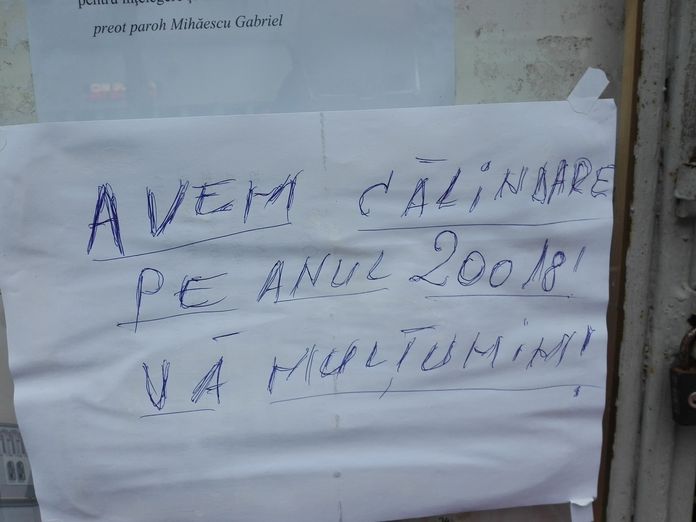 pentru înțelegere și
preot paroh Mihăescu Gabriel
AVEM CĂLiNDARE
PE ANUL 20018!
VĂ MULȚUMiMi!